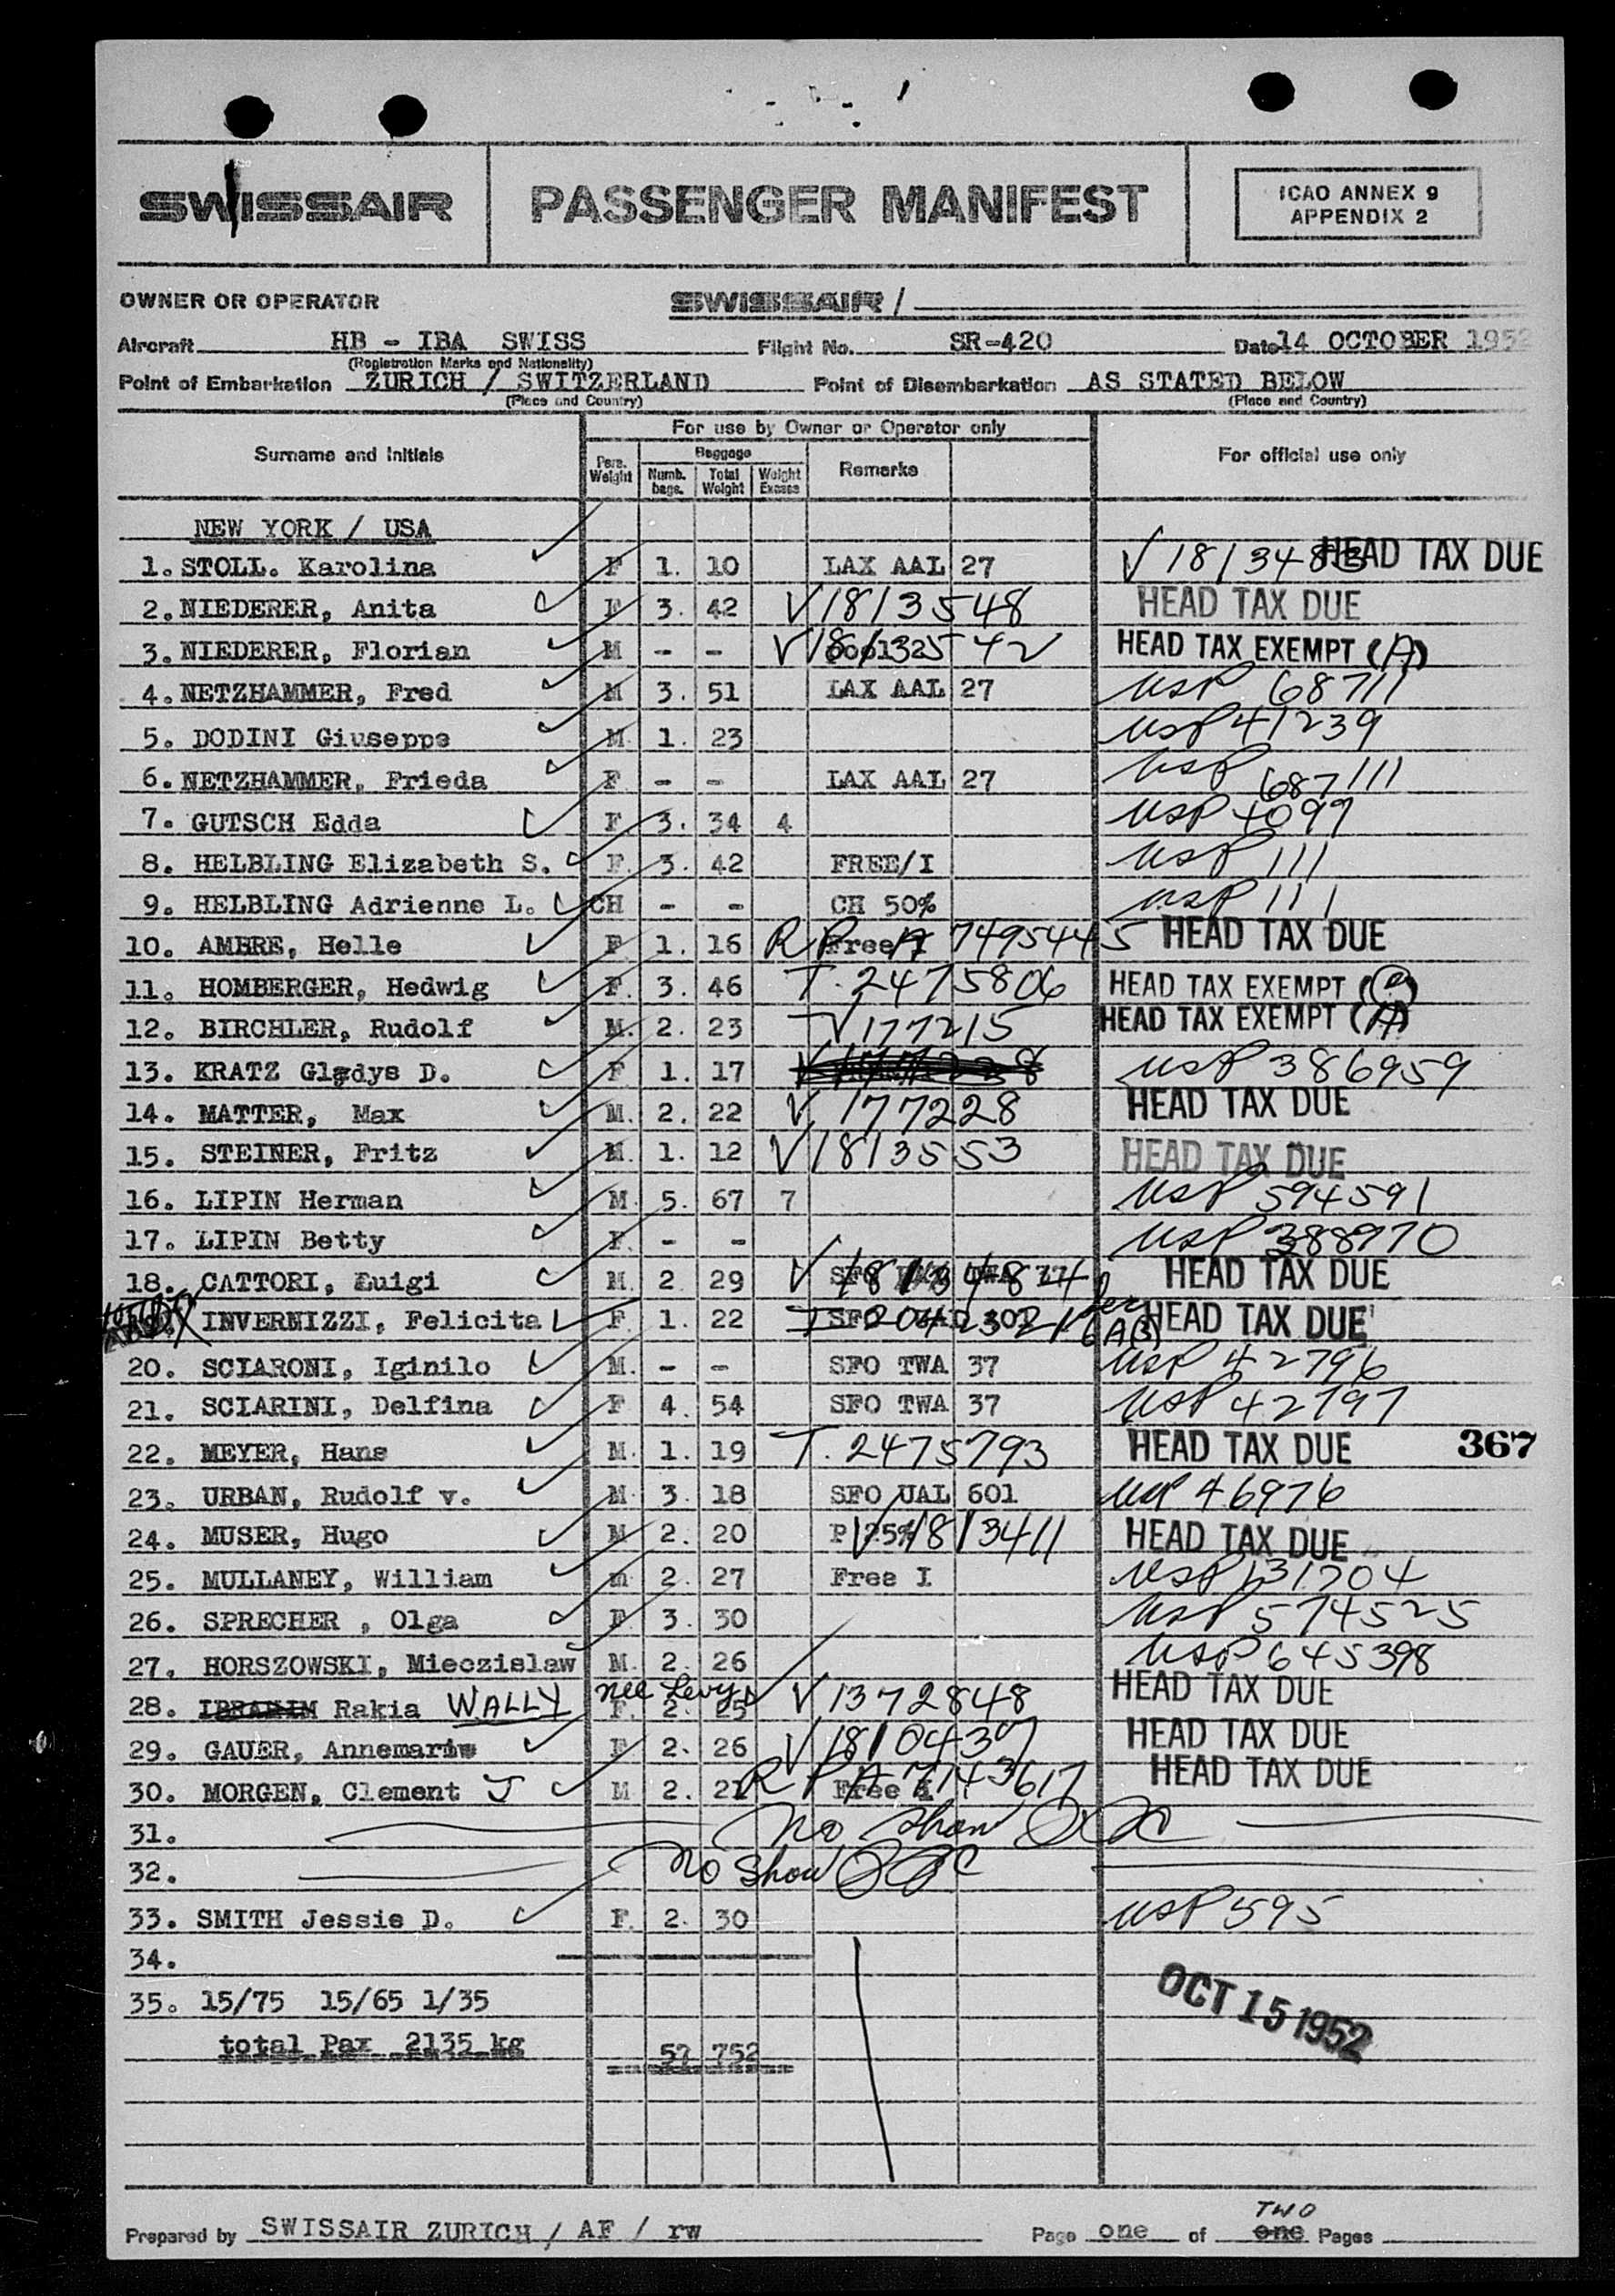 SWISSAIR PASSENGER MANIFEST ICAO ANNEX 9
APPENDIX 2
OWNER OR OPERATOR SWISSAIR /
Aircraft HB - IBA SWISS Flight No. SR-420 Date 14 OCTOBER 1952
(Registration Marks and Nationality)
Point of Embarkation ZURICH / SWITZERLAND Point of Disembarkation AS STATED BELOW
(Place and Country) (Place and Country)
For use by Owner or Operator only
Surname and Initials Pers. Weight Baggage Numb. bags. Total Weight Weight Excess Remarks For official use only
NEW YORK / USA
1. STOLL. Karolina F 1. 10 LAX AAL 27 V 181348 HEAD TAX DUE
2. NIEDERER, Anita F 3. 42 V1813548 HEAD TAX DUE
3. NIEDERER, Florian M - - HEAD TAX EXEMPT (A)
4. NETZHAMMER, Fred M 3. 51 LAX AAL 27 USP 68711
5. DODINI Giuseppe M. 1. 23 USP 41239
6. NETZHAMMER, Frieda F - - LAX AAL 27 USP 687111
7. GUTSCH Edda F 3. 34 4 USP 4097
8. HELBLING Elizabeth S. F. 3. 42 FREE/I USP 111
9. HELBLING Adrienne L. CH - - CH 50% USP 111
10. AMBRE, Helle F. 1. 16 R P A 7495445 Free I HEAD TAX DUE
11. HOMBERGER, Hedwig F. 3. 46 T. 2475806 HEAD TAX EXEMPT
12. BIRCHLER, Rudolf M. 2. 23 V177215 HEAD TAX EXEMPT (A)
13. KRATZ Gladys D. F 1. 17 USP 386959
14. MATTER, Max M. 2. 22 V 177228 HEAD TAX DUE
15. STEINER, Fritz M. 1. 12 V1813553 HEAD TAX DUE
16. LIPIN Herman M. 5. 67 7 USP 594591
17. LIPIN Betty F. - - USP 388970
18. CATTORI, Luigi M. 2. 29 V 18134824 HEAD TAX DUE
INVERNIZZI, Felicita F. 1. 22 HEAD TAX DUE
20. SCIARONI, Iginilo M. - - SFO TWA 37 USP 42796
21. SCIARINI, Delfina F 4. 54 SFO TWA 37 USP 42797
22. MEYER, Hans M. 1. 19 T. 2475793 HEAD TAX DUE 367
23. URBAN, Rudolf v. M 3. 18 SFO UAL 601 USP 46976
24. MUSER, Hugo M 2. 20 P 25% V1813411 HEAD TAX DUE
25. MULLANEY, William m 2. 27 Free I USP 131704
26. SPRECHER , Olga F. 3. 30 USP 574525
27. HORSZOWSKI, Mieczislaw M. 2. 26 USP 645398
28. IBRAHIM Rakia WALLY nee Levy F. 2. 25 V 1372848 HEAD TAX DUE
29. GAUER, Annemarie F 2. 26 V 1810437 HEAD TAX DUE
30. MORGEN, Clement J M 2. 21 R P A 7143617 Free I HEAD TAX DUE
31. No Show
32. No Show
33. SMITH Jessie D. F. 2. 30 USP 595
34.
35. 15/75 15/65 1/35
OCT 15 1952
total Pax 2135 kg 57 752
Prepared by SWISSAIR ZURICH / AF / rw Page one of one TWO Pages